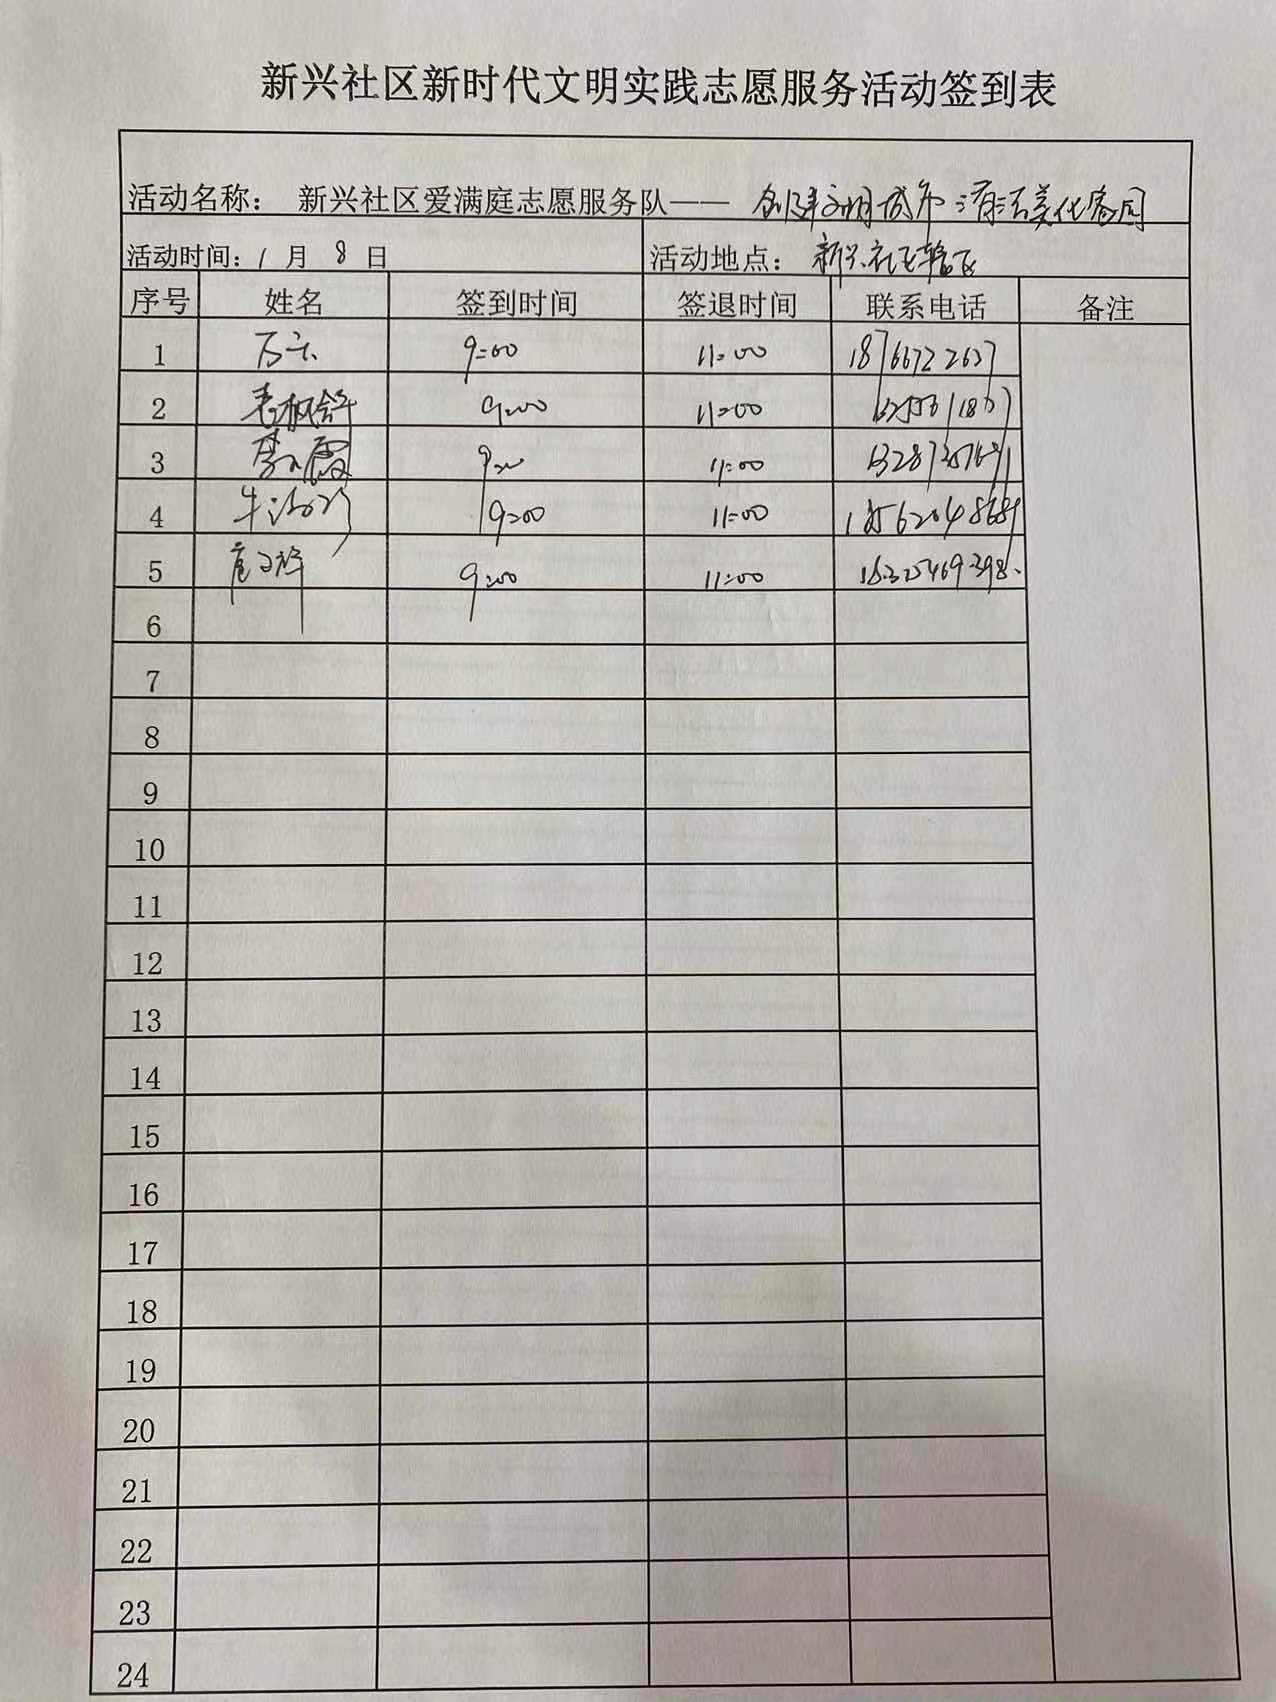 新兴社区新时代文明实践志愿服务活动签到表
活动名称： 新兴社区爱满庭志愿服务队—— 创建文明城市 清洁美化家园
活动时间：1 月 8 日 活动地点： 新兴社区辖区
序号 姓名 签到时间 签退时间 联系电话 备注
1 9:00 11:00
2 9:00 11:00
3 9:00 11:00
4 9:00 11:00
5 9:00 11:00
6
7
8
9
10
11
12
13
14
15
16
17
18
19
20
21
22
23
24